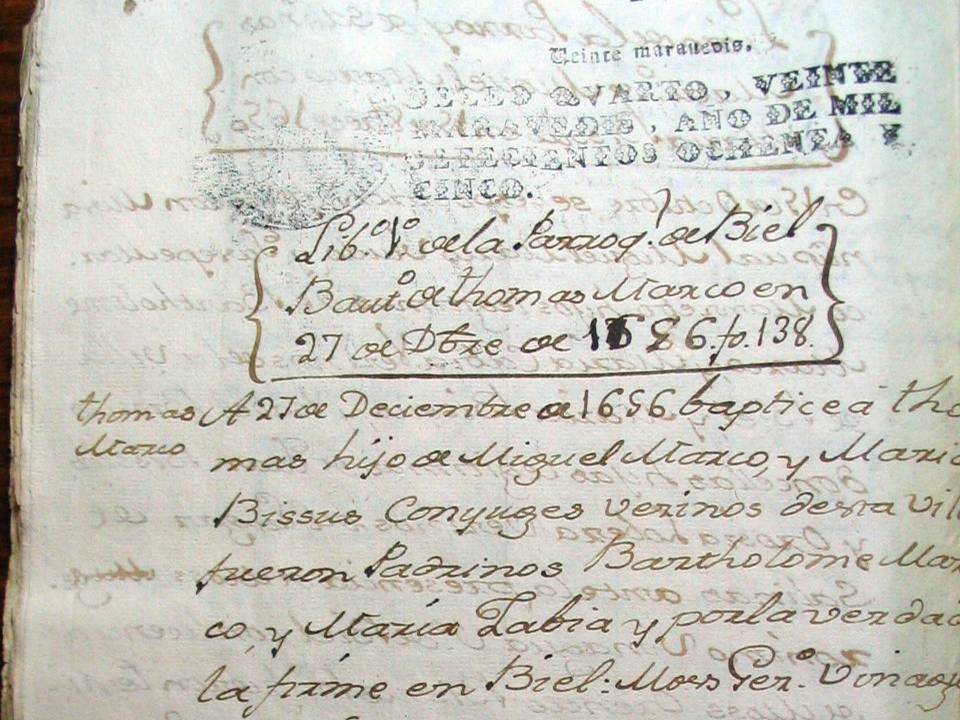 Veinte maravedis.
SELLO QVARTO, VEINTE
MARAVEDIS, AÑO DE MIL
SETECIENTOS OCHENTA Y
CINCO.
Lib.º V.º de la Parroq. de Biel
Baut.º de thomas Marco en
27 de Dbre de 1656 fo. 138.
thomas Marco
A 27 de Deciembre de 1656 baptice á tho
mas hijo de Miguel Marco, y Maria
Bissus Conyuges vezinos desta vill
fueron Padrinos Bartholome Mar
co, y María Labia y por la verdad
la firme en Biel: Mosn